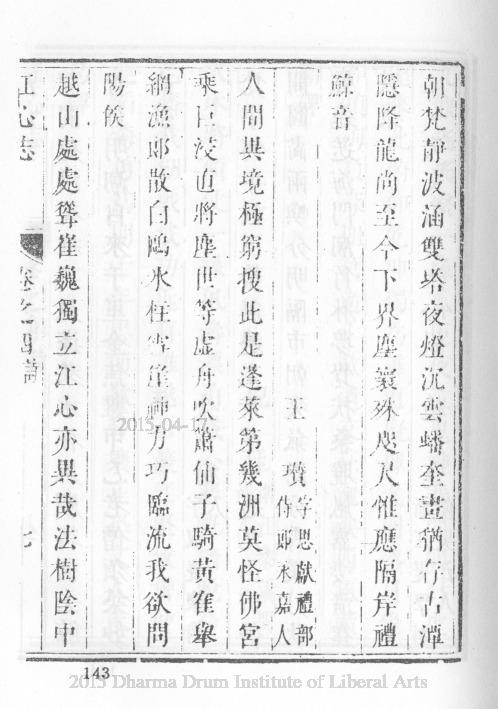 朝梵靜波涵雙塔夜燈沉雲蟠奎畫猶存古潭
隱降龍尚至今下界塵寰殊咫尺惟應隔岸禮
鯨音
王瓚字思獻禮部侍郎永嘉人
人間異境極窮搜此是蓬萊第幾洲莫怪佛宮
乘巨浸直將塵世等虛舟吹簫仙子騎黃隺舉
網漁郎散白鷗氷柱崖神力巧臨流我欲問
陽侯
越山處處聳崔巍獨立江心亦異哉法樹陰中
江心志
卷之四詩
七
143
2015-04-17
2015 Dharma Drum Institute of Liberal Arts